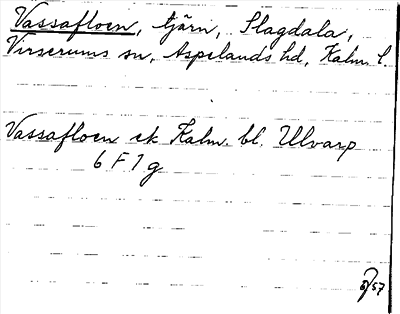 Vassafloen, tjärn, Slagdala,
Virserums sn, Aspelands hd, Kalm. l.
Vassafloen ek Kalm. bl. Ulvarp
6 F 1 g
57